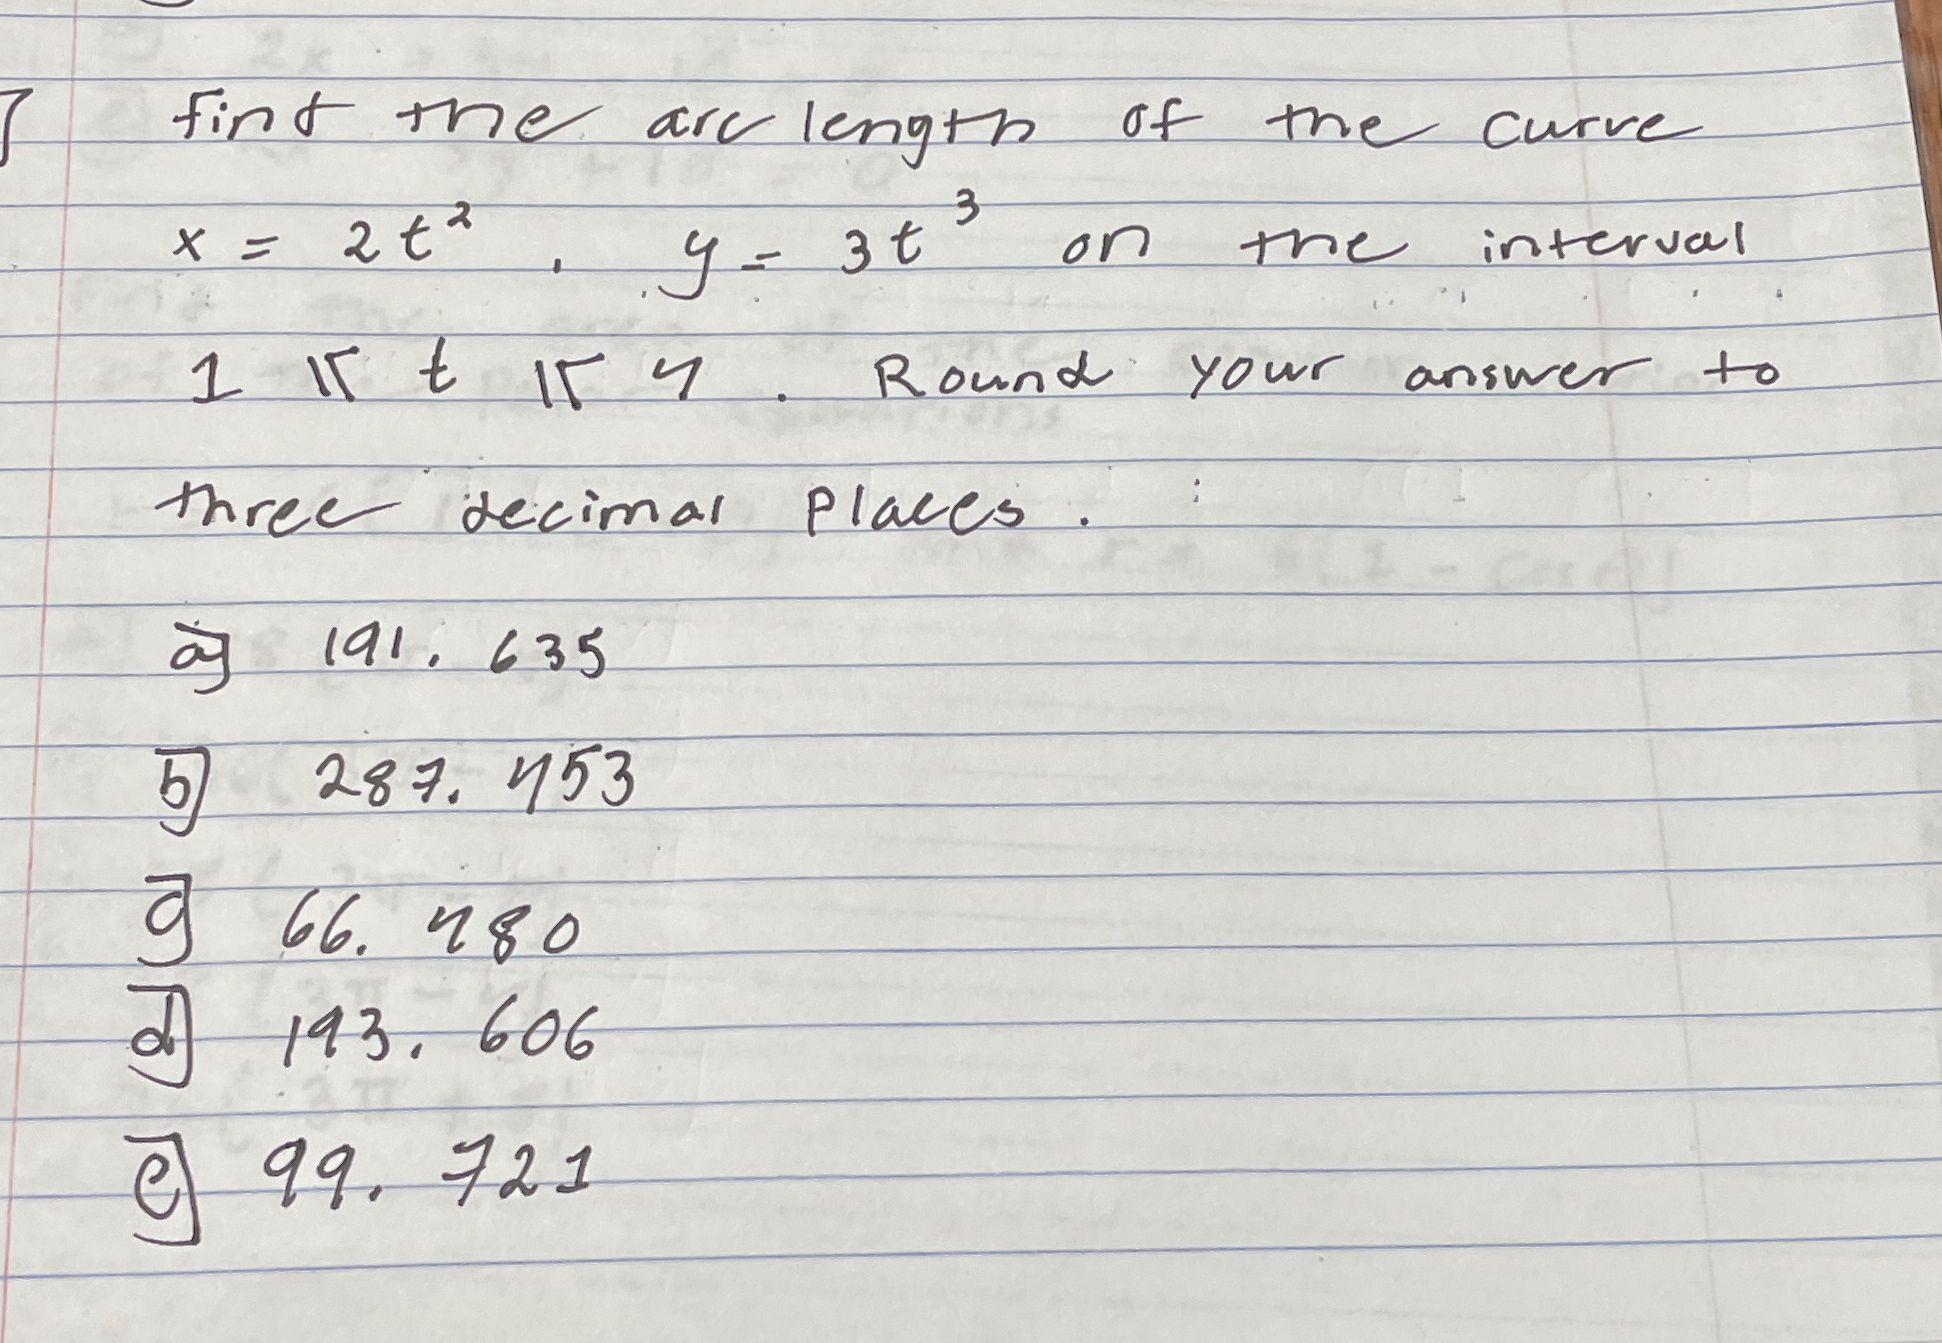 ] find the arc length of the curve
x = 2t², y = 3t³ on the interval
1 ≤ t ≤ 4. Round your answer to
three decimal places.
a] 191.635
b] 287.453
c] 66.480
d] 193.606
e] 99.721